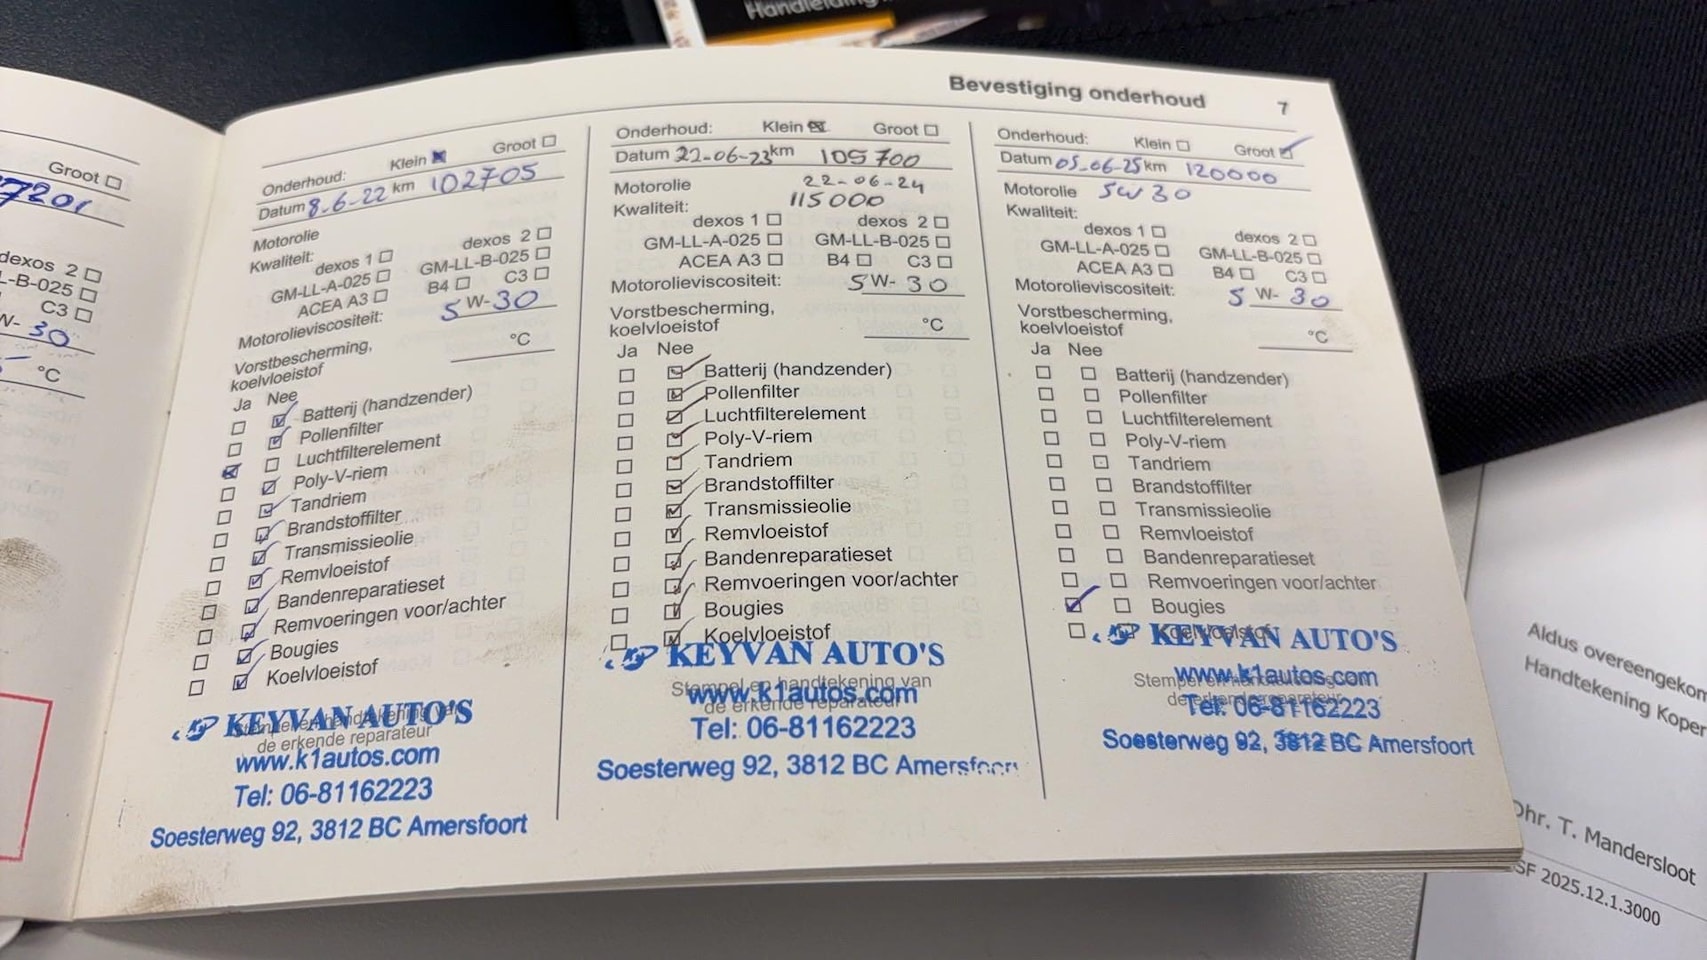 Handleiding
Groot
7201
dexos 2
L-B-025
C3
W- 30
°C
Bevestiging onderhoud 7
Onderhoud: Klein Groot
Datum 8-6-22 km 102705
Motorolie
Kwaliteit:
dexos 1 dexos 2
GM-LL-A-025 GM-LL-B-025
ACEA A3 B4 C3
Motorolieviscositeit: 5 W- 30
Vorstbescherming,
koelvloeistof °C
Ja Nee
Batterij (handzender)
Pollenfilter
Luchtfilterelement
Poly-V-riem
Tandriem
Brandstoffilter
Transmissieolie
Remvloeistof
Bandenreparatieset
Remvoeringen voor/achter
Bougies
Koelvloeistof
Stempel en handtekening van
de erkende reparateur
KEYVAN AUTO'S
www.k1autos.com
Tel: 06-81162223
Soesterweg 92, 3812 BC Amersfoort
Onderhoud: Klein Groot
Datum 22-06-23 km 105700
Motorolie 22-06-24
Kwaliteit: 115000
dexos 1 dexos 2
GM-LL-A-025 GM-LL-B-025
ACEA A3 B4 C3
Motorolieviscositeit: 5 W- 30
Vorstbescherming,
koelvloeistof °C
Ja Nee
Batterij (handzender)
Pollenfilter
Luchtfilterelement
Poly-V-riem
Tandriem
Brandstoffilter
Transmissieolie
Remvloeistof
Bandenreparatieset
Remvoeringen voor/achter
Bougies
Koelvloeistof
KEYVAN AUTO'S
Stempel en handtekening van
www.k1autos.com
de erkende reparateur
Tel: 06-81162223
Soesterweg 92, 3812 BC Amersfoort
Onderhoud: Klein Groot
Datum 05-06-25 km 120000
Motorolie 5W30
Kwaliteit:
dexos 1 dexos 2
GM-LL-A-025 GM-LL-B-025
ACEA A3 B4 C3
Motorolieviscositeit: 5 W- 30
Vorstbescherming,
koelvloeistof °C
Ja Nee
Batterij (handzender)
Pollenfilter
Luchtfilterelement
Poly-V-riem
Tandriem
Brandstoffilter
Transmissieolie
Remvloeistof
Bandenreparatieset
Remvoeringen voor/achter
Bougies
Koelvloeistof
KEYVAN AUTO'S
Stempel en handtekening van
www.k1autos.com
de erkende reparateur
Tel: 06-81162223
Soesterweg 92, 3812 BC Amersfoort
Aldus overeengekom
Handtekening Koper
Dhr. T. Mandersloot
SF 2025.12.1.3000